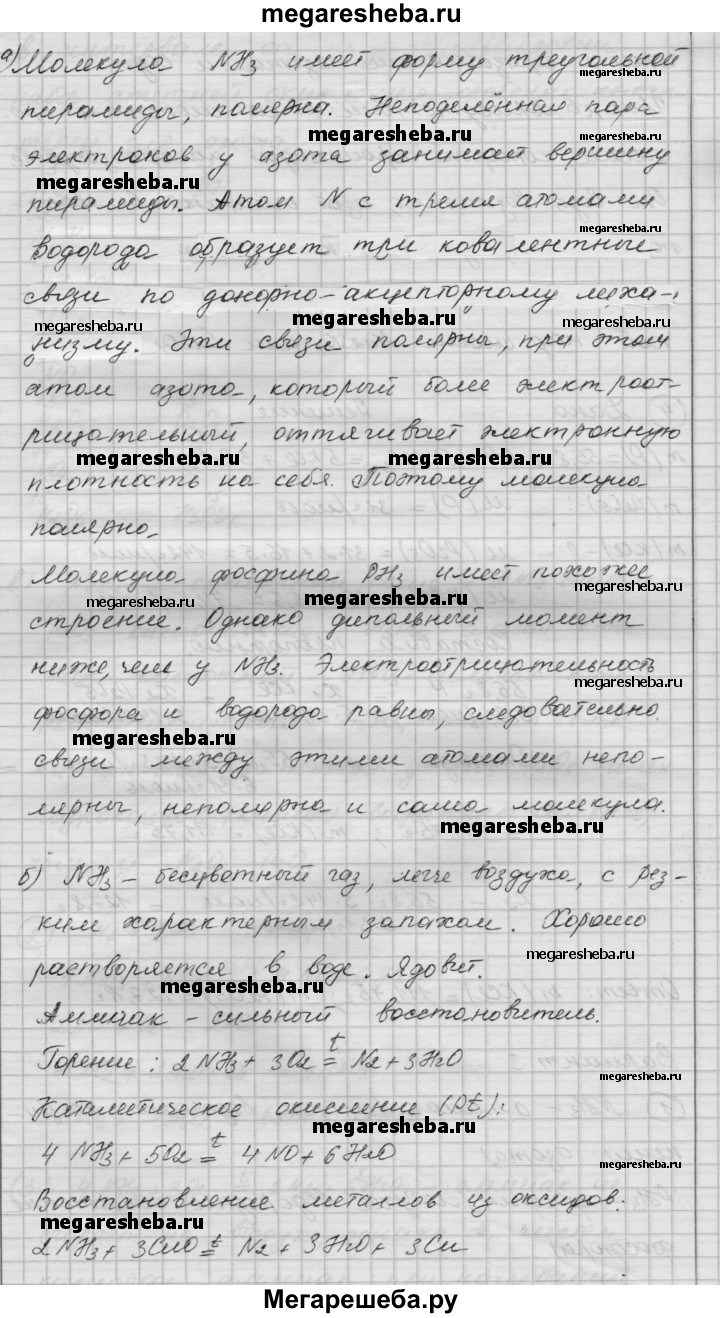 megaresheba.ru
а) Молекула NH3 имеет форму треугольной
megaresheba.ru
пирамиды, полярна. Неподелённая пара
megaresheba.ru megaresheba.ru
электронов у азота занимает вершину
megaresheba.ru
пирамиды. Атом N с тремя атомами
megaresheba.ru
водорода образует три ковалентные
связи по донорно-акцепторному меха-
megaresheba.ru megaresheba.ru megaresheba.ru
низму. Эти связи полярны, при этом
атом азота, который более электроот-
рицательный, оттягивает электронную
megaresheba.ru megaresheba.ru
плотность на себя. Поэтому молекула
полярна.
Молекула фосфина PH3 имеет похожее
megaresheba.ru megaresheba.ru megaresheba.ru
строение. Однако дипольный момент
ниже, чем у NH3. Электроотрицательность
megaresheba.ru
фосфора и водорода равны, следовательно
megaresheba.ru
связи между этими атомами непо-
лярны, неполярна и сама молекула.
megaresheba.ru
б) NH3 - бесцветный газ, легче воздуха, с рез-
ким характерным запахом. Хорошо
megaresheba.ru
растворяется в воде. Ядовит.
megaresheba.ru
Аммиак - сильный восстановитель.
Горение: 2NH3 + 3O2 t= N2 + 3H2O
megaresheba.ru
Каталитическое окисление (Pt):
megaresheba.ru
4 NH3 + 5O2 t= 4NO + 6H2O
megaresheba.ru
Восстановление металлов из оксидов:
megaresheba.ru
2NH3 + 3CuO t= N2 + 3H2O + 3Cu
Мегарешеба.ру